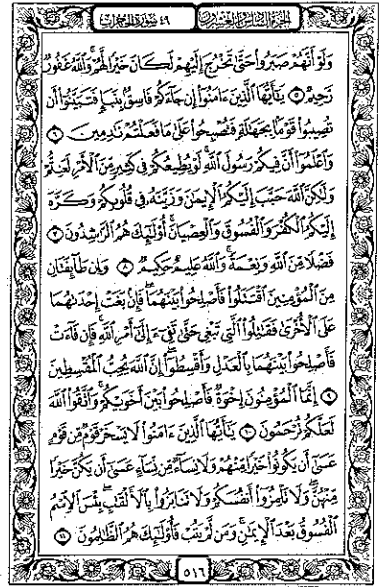 الجزء السادس والعشرون ٤٩ سورة الحجرات
وَلَوْ أَنَّهُمْ صَبَرُوا حَتَّىٰ تَخْرُجَ إِلَيْهِمْ لَكَانَ خَيْرًا لَّهُمْ وَاللَّهُ غَفُورٌ
رَّحِيمٌ ۝٥ يَٰٓأَيُّهَا الَّذِينَ ءَامَنُوٓا إِن جَآءَكُمْ فَاسِقٌۢ بِنَبَإٍ فَتَبَيَّنُوٓا أَن
تُصِيبُوا قَوْمًۢا بِجَهَٰلَةٍ فَتُصْبِحُوا عَلَىٰ مَا فَعَلْتُمْ نَٰدِمِينَ ۝٦
وَاعْلَمُوٓا أَنَّ فِيكُمْ رَسُولَ اللَّهِ لَوْ يُطِيعُكُمْ فِي كَثِيرٍ مِّنَ الْأَمْرِ لَعَنِتُّمْ
وَلَٰكِنَّ اللَّهَ حَبَّبَ إِلَيْكُمُ الْإِيمَٰنَ وَزَيَّنَهُۥ فِي قُلُوبِكُمْ وَكَرَّهَ
إِلَيْكُمُ الْكُفْرَ وَالْفُسُوقَ وَالْعِصْيَانَ أُولَٰٓئِكَ هُمُ الرَّٰشِدُونَ ۝٧
فَضْلًا مِّنَ اللَّهِ وَنِعْمَةً وَاللَّهُ عَلِيمٌ حَكِيمٌ ۝٨ وَإِن طَآئِفَتَانِ
مِنَ الْمُؤْمِنِينَ اقْتَتَلُوا فَأَصْلِحُوا بَيْنَهُمَا فَإِنۢ بَغَتْ إِحْدَىٰهُمَا
عَلَى الْأُخْرَىٰ فَقَٰتِلُوا الَّتِي تَبْغِي حَتَّىٰ تَفِيٓءَ إِلَىٰٓ أَمْرِ اللَّهِ فَإِن فَآءَتْ
فَأَصْلِحُوا بَيْنَهُمَا بِالْعَدْلِ وَأَقْسِطُوٓا إِنَّ اللَّهَ يُحِبُّ الْمُقْسِطِينَ
۝٩ إِنَّمَا الْمُؤْمِنُونَ إِخْوَةٌ فَأَصْلِحُوا بَيْنَ أَخَوَيْكُمْ وَاتَّقُوا اللَّهَ
لَعَلَّكُمْ تُرْحَمُونَ ۝١٠ يَٰٓأَيُّهَا الَّذِينَ ءَامَنُوا لَا يَسْخَرْ قَوْمٌ مِّن قَوْمٍ
عَسَىٰٓ أَن يَكُونُوا خَيْرًا مِّنْهُمْ وَلَا نِسَآءٌ مِّن نِّسَآءٍ عَسَىٰٓ أَن يَكُنَّ خَيْرًا
مِّنْهُنَّ وَلَا تَلْمِزُوٓا أَنفُسَكُمْ وَلَا تَنَابَزُوا بِالْأَلْقَٰبِ بِئْسَ الِاسْمُ
الْفُسُوقُ بَعْدَ الْإِيمَٰنِ وَمَن لَّمْ يَتُبْ فَأُولَٰٓئِكَ هُمُ الظَّٰلِمُونَ ۝١١
٥١٦